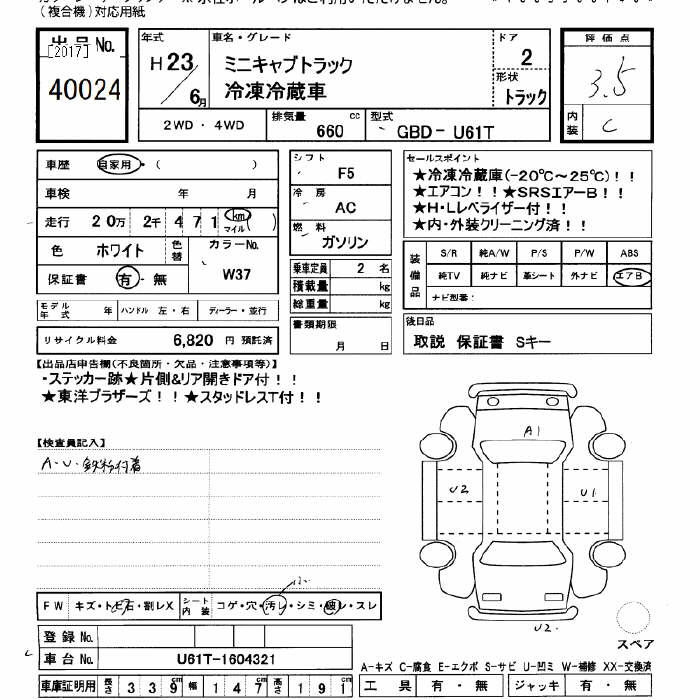 (複合機)対応用紙
出品No.
[2017]
40024
年式
H23/6月
車名・グレード
ミニキャブトラック
冷凍冷蔵車
ドア
2
形状
トラック
評価点
3.5
内装
C
2WD・4WD
排気量 660 cc
型式 GBD-U61T
車歴 自家用・( )
車検 年 月
走行 20万 2千 471 km マイル ( )
色 ホワイト 色替
カラーNo.
W37
保証書 有・無
モデル年式 年 ハンドル 左・右 ディーラー・並行
リサイクル料金 6,820 円 預託済
シフト
F5
冷房
AC
燃料
ガソリン
乗車定員 2 名
積載量 kg
総重量 kg
書類期限
月 日
セールスポイント
★冷凍冷蔵庫(-20℃~25℃)!!
★エアコン!!★SRSエアーB!!
★H・Lレベライザー付!!
★内・外装クリーニング済!!
装備品
S/R 純A/W P/S P/W ABS
純TV 純ナビ 革シート 外ナビ エアB
ナビ型番:
後日品
取説 保証書 Sキー
【出品店申告欄(不良箇所・欠品・注意事項等)】
・ステッカー跡★片側&リア開きドア付!!
★東洋ブラザーズ!!★スタッドレスT付!!
【検査員記入】
A・U・鉄粉付着
A1
U2
U1
U2
スペア
FW キズ・トビ石・割レX
シート内装 コゲ・穴・汚レ・シミ・破レ・スレ
小
登録No.
車台No. U61T-1604321
A-キズ C-腐食 E-エクボ S-サビ U-凹ミ W-補修 XX-交換済
車庫証明用 長さ 339 cm 幅 147 cm 高さ 191 cm
工具 有・無 ジャッキ 有・無